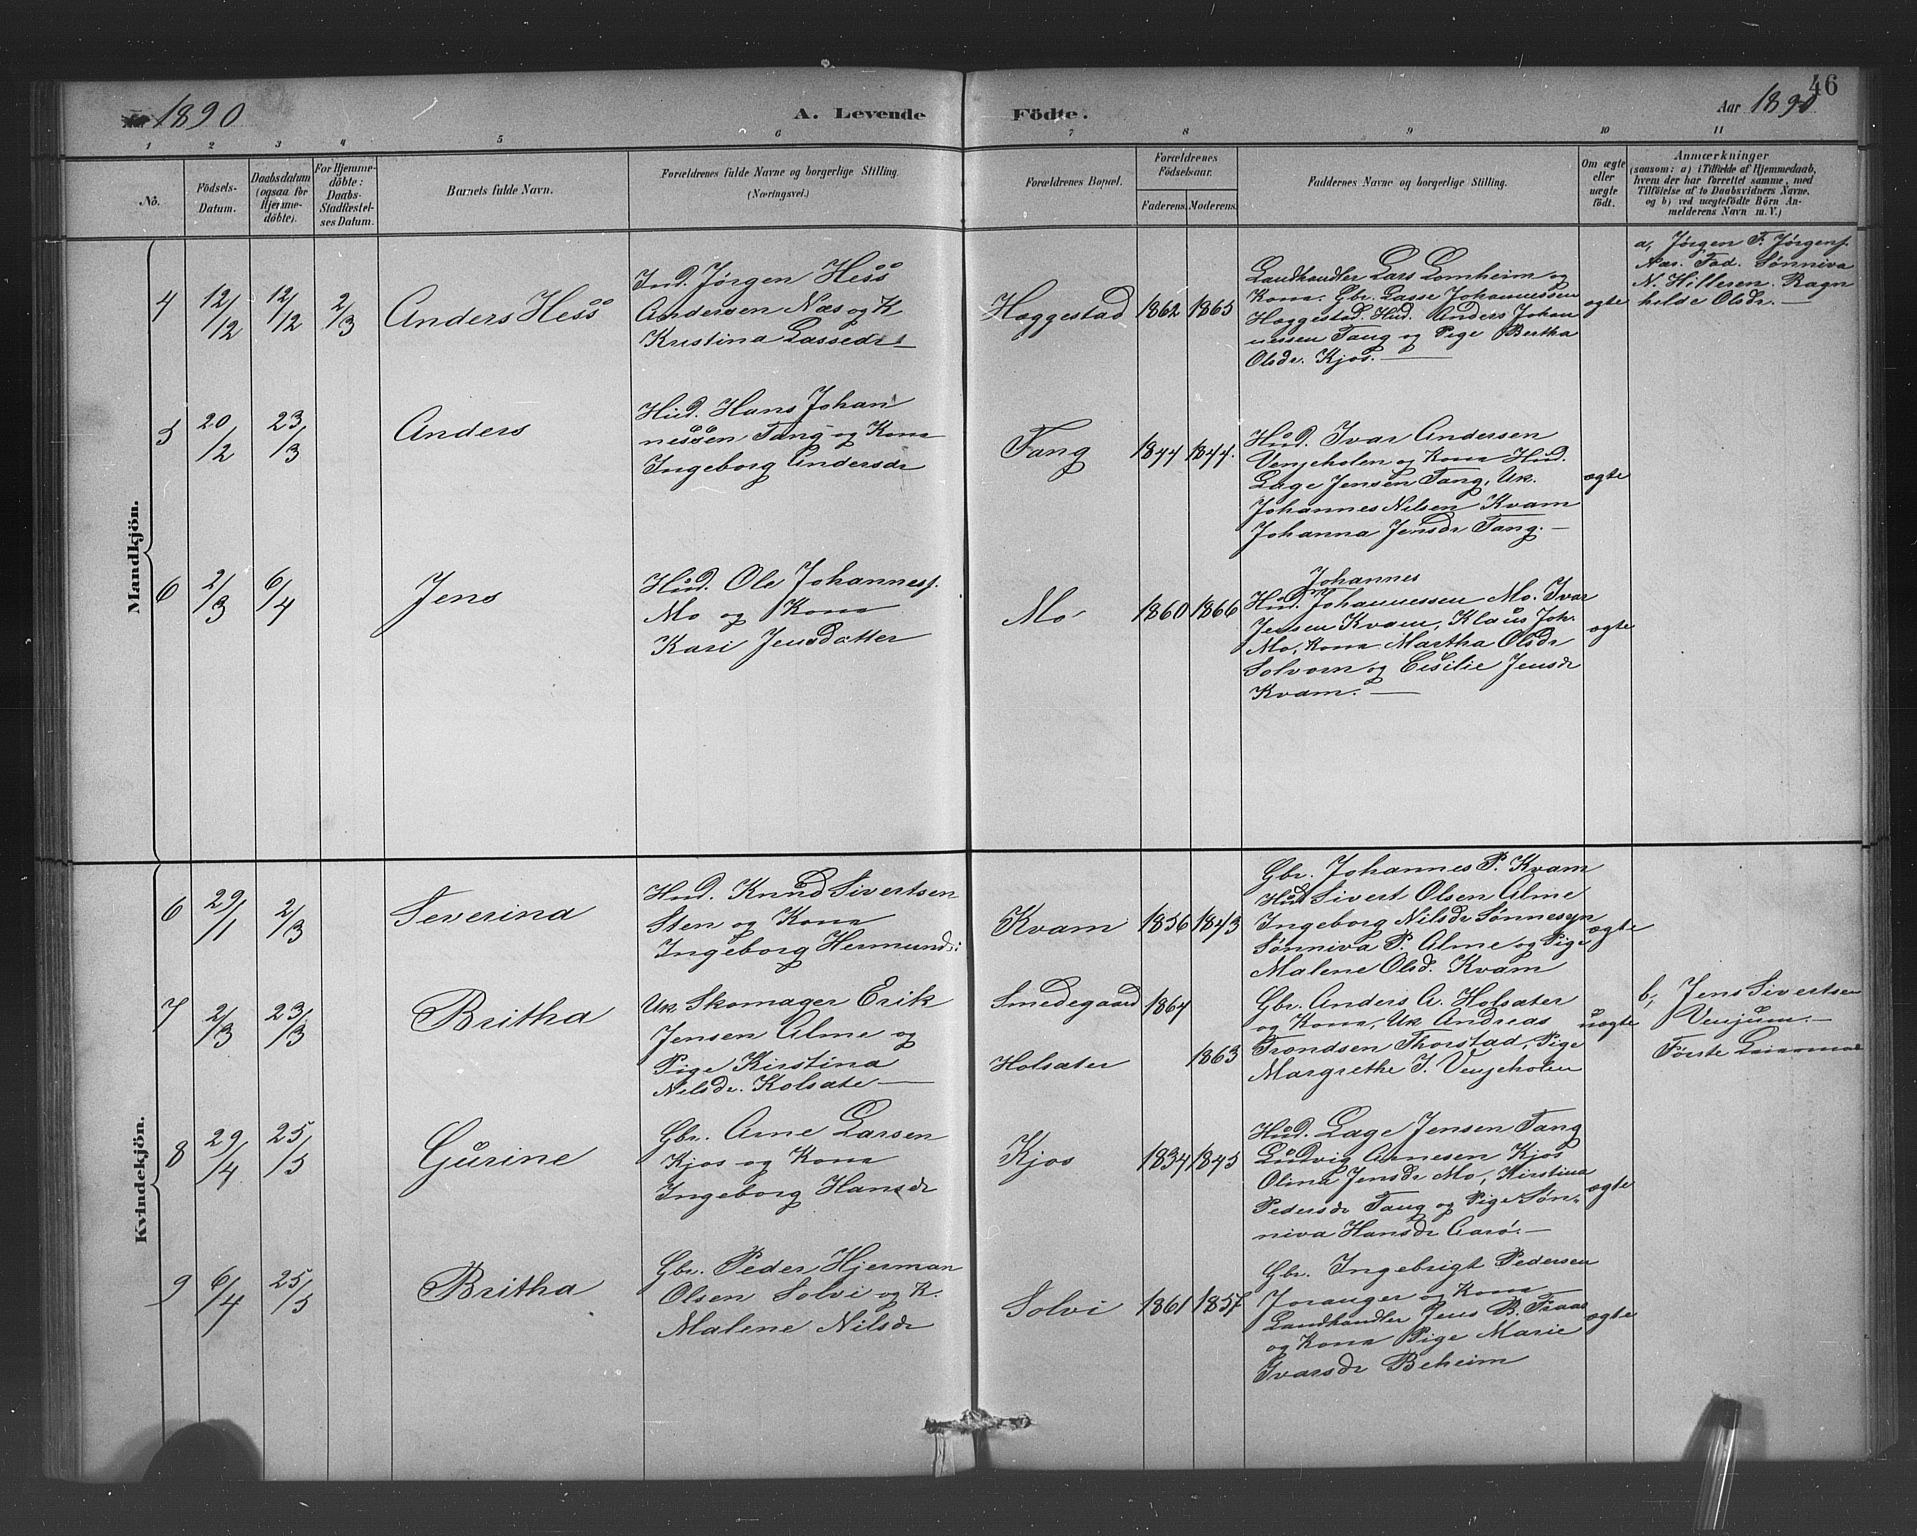 Aar 1890
A. Levende Födte.
Aar 1890
46
1 2 3 4 5 6 7 8 9 10 11
No.
Födsels-Datum.
Daabsdatum (ogsaa for Hjemmedöbte).
For Hjemmedöbte: Daabs-Stadfæstelses Datum.
Barnets fulde Navn.
Forældrenes fulde Navne og borgerlige Stilling.
(Næringsvei.)
Forældrenes Bopæl.
Forældrenes Födselsaar.
Faderens. Moderens.
Faddernes Navne og borgerlige Stilling.
Om ægte eller uægte födt.
Anmærkninger
(saasom: a) i Tilfælde af Hjemmedaab,
hvem der har forrettet samme, med
Tilföielse af to Daabsvidners Navne,
og b) ved uægtefödte Börn Anmelderens Navn m. V.)
Mandkjön.
4 12/12 12/12 2/3 Anders Hess
Ind. Jørgen Hess
Andersen Næs og K
Kristina Lassedr
Haggestad 1862 1865
Landhandler Lars Lomheim og
Kona. Gbr. Lasse Johannessen
Haggestad. Hud. Anders Johan
nessen Fang og Pige Bertha
Olsdr. Kjos.
ægte
a, Jørgen F. Jørgens.
Næs. Fad. Sønniva
N. Hilleren. Ragn
hilde Olsdr.
5 20/2 23/3 Anders
Hud. Hans Johan
nessen Fang og Kona
Ingeborg Andersdr
Fang 1844 1844.
Hud. Ivar Andersen
Venjeholen og Kona Hud.
Lage Jensen Fang, Uk.
Johannes Nilsen Kvam
Johanna Jensdr Fang.
ægte
6 2/3 6/4 Jens
Hud. Ole Johanness.
Mo og Kona
Kari Jensdatter
Mo 1860 1866
Johannes
Hud. Johannessen Mo. Ivar
Jensen Kvam, Klaus Joh.
Mo, Kona Martha Olsdr
Solvorn og Cesilie Jensdr
Kvam.
ægte
Kvindekjön.
6 29/1 2/3 Severina
Hud. Knud Sivertsen
Sten og Kona
Ingeborg Hermunds:
Kvam 1856 1843
Gbr. Johannes P. Kvam
Hud Sivert Olsen Alme
Ingeborg Nilsdr Sønnesyn
Sønniva P. Alme og Pige
Malene Olsd. Kvam
ægte
7 2/3 23/3 Britha
Uk Skomager Erik
Jensen Alme og
Pige Kirstina
Nilsdr. Kolsate
Smedegaard 1864
Holsater 1863
Gbr. Anders A. Holsater
og Kona, Uk Andreas
Trondsen Thorstad, Pige
Margrethe I. Venjeholen
uægte
b, Jens Sivertsen
Venjum.
Første Leiermaal
8 29/4 25/5 Gurine
Gbr. Arne Larsen
Kjos og Kona
Ingeborg Hansdr
Kjos 1834 1845
Hud. Lage Jensen Fang
Ludvig Arnesen Kjos
Olina Jensdr Mo, Kirstina
Pedersdr Fang og Pige Søn-
niva Hansdr Aarø.
ægte
9 6/4 25/5 Britha
Gbr. Peder Hjerman
Olsen Solvi og K.
Malene Nilsdr
Solvi 1861 1857
Gbr. Ingebrigt Pedersen
Joranger og Kona
Landhandler Jens B. Fraas
og Kona Pige Marie
Ivarsdr Beheim
ægte